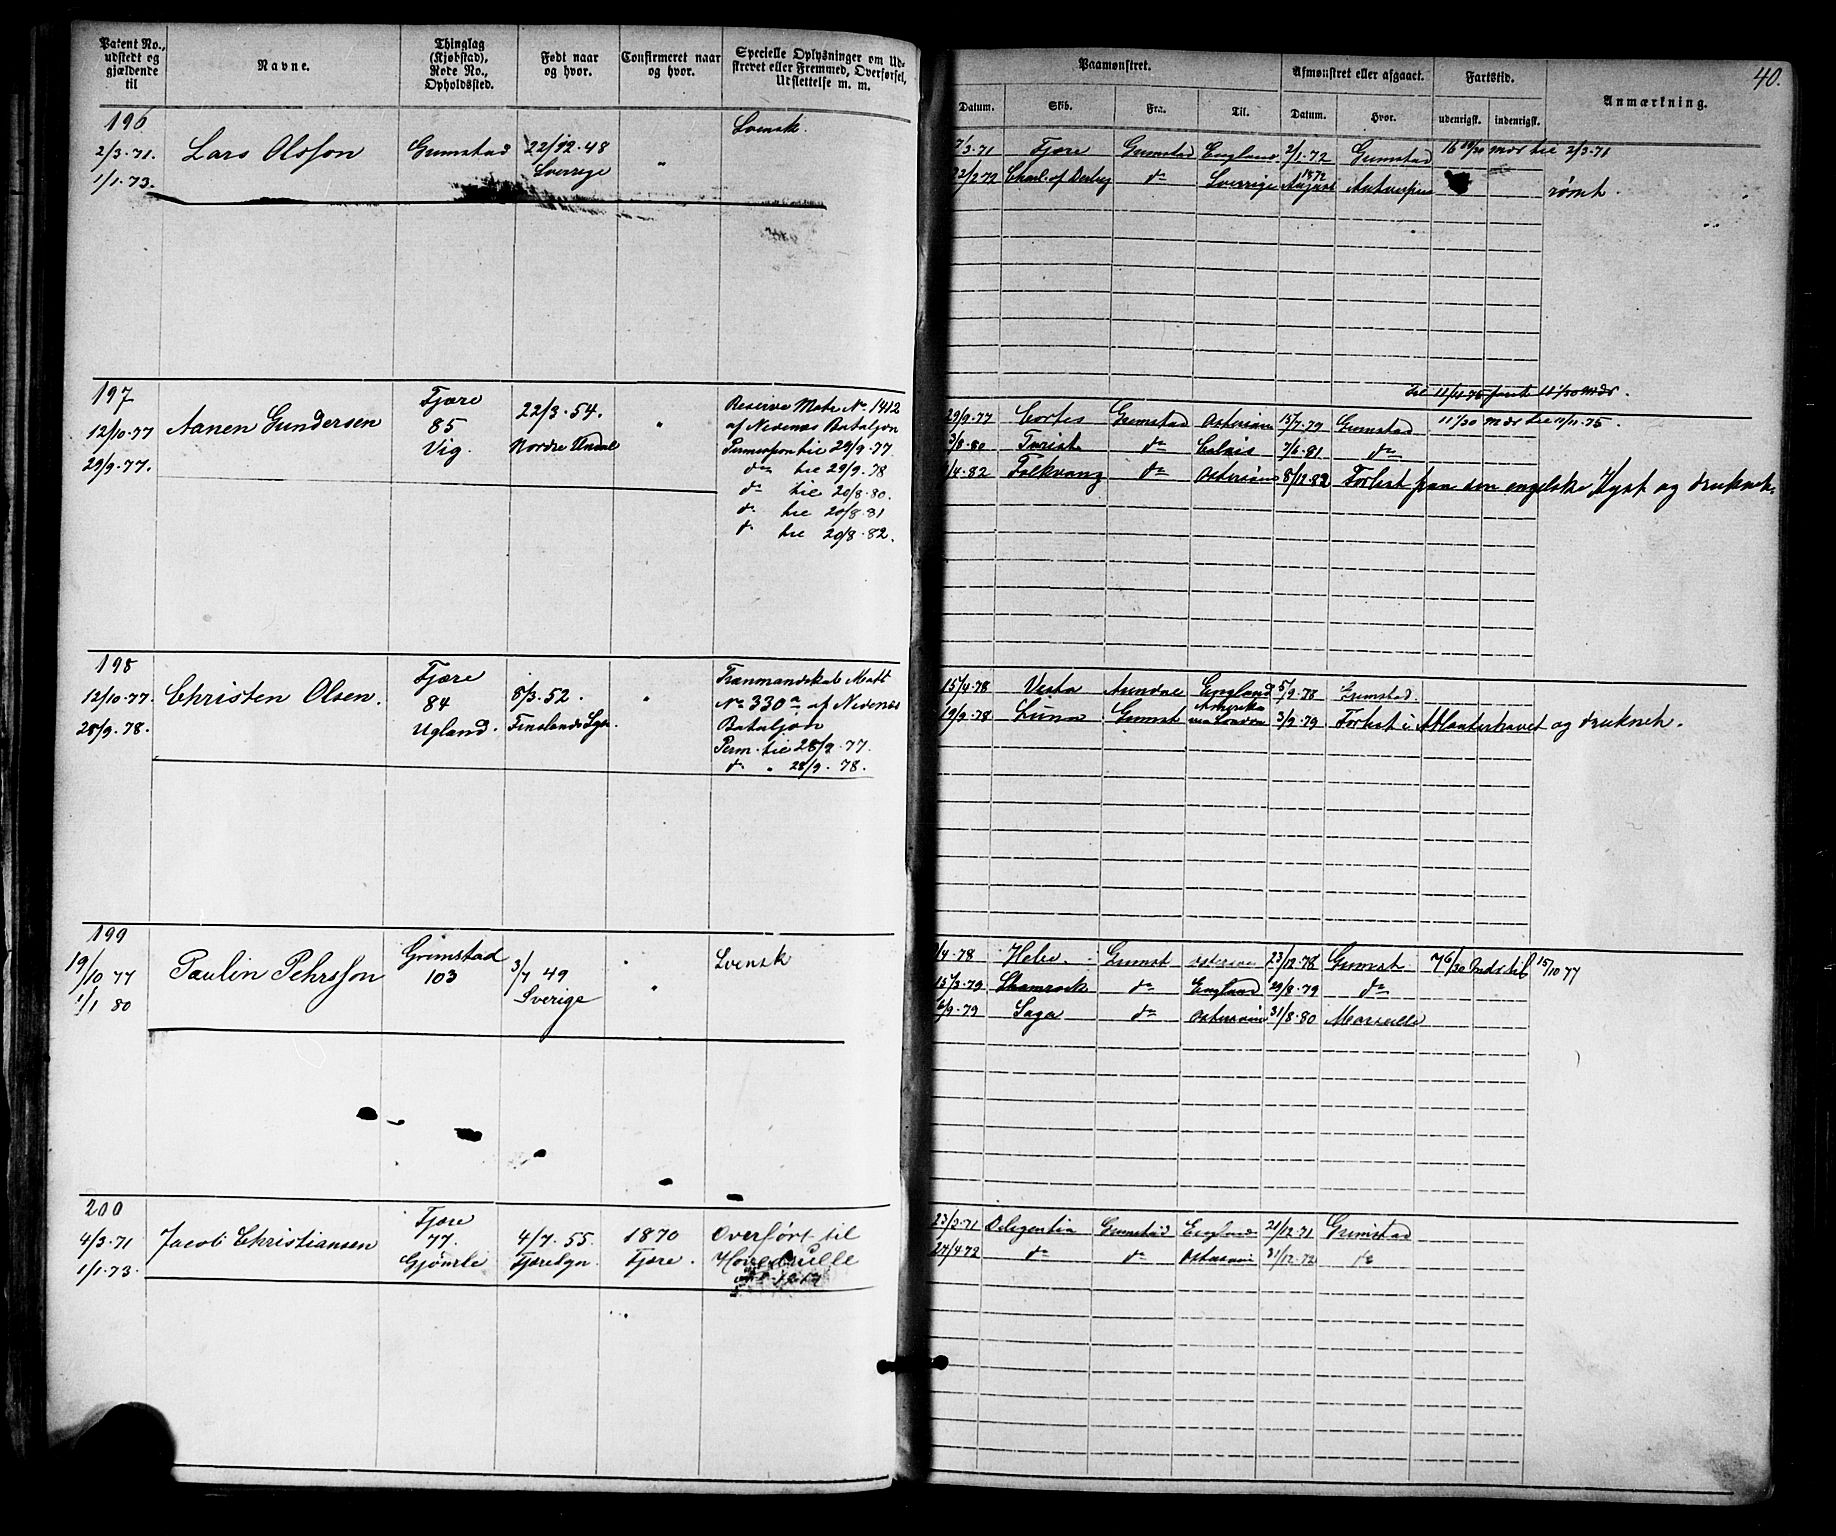 Patent No., udstedt og gjældende til
Navne.
Thinglag (Kjøbstad), Rode No., Opholdssted.
Født naar og hvor.
Confirmeret naar og hvor.
Specielle Oplysninger om Udskrevet eller Fremmed, Overførsel, Udslettelse m. m.
Paamønstret.
Datum. Skib. Fra: Til.
Afmønstret eller afgaaet.
Datum. Hvor.
Fartstid.
udenrigsk. indenrigsk.
Anmærkning.
40.
196
2/3.71. Lars Olsson Grimstad 22/12.48 " Svensk.
1/1.73. Sverrige
7/3.71 Fjære Grimstad England 2/1.72 Grimstad 16 19/30 mdr til 2/3.71
22/2.72 Charl. of Derby do Sverrige August 1872 Antwerpen rømt.
197
12/10.77 Aanen Gundersen Fjære 22/3.54. " Reserve Matr No. 1412
29/9.77. 85 Nordre Undal af Nedenæs Bataljon
Vig. Permission til 29/9.77
do til 29/9.78
do til 20/8.80.
do til 20/8.81
do til 20/8.82.
til 11/11 75 paret 11 1/30 mdr.
29/9.77 Cortes Grimstad Østersøen 15/7.79 Grimstad 11 1/30 mdr til 11/11.75.
3/8.80 Turist do Calais 7/6.81 do
1/4.82 Folkvang do Østersøen 8/12.82 Forlist paa den engelske Kyst og druknet.
198
12/10.77. Christen Olsen. Fjære 5/3.52. " Trænmandskab Matr
28/9.78. 84 Finslands Sgn. No 330a af Nedenæs
Ugland. Bataljon
Perm. til 28/9.77.
do " 28/9.78.
15/4.78 Vesta Arendal England 5/9.78 Grimstad.
19/9.78 Luna Grimst Amerika via London 3/9.79 Forlist i Atlanterhavet og druknet.
199
19/10 77 Paulin Pehrsson Grimstad 3/7 49 " Svensk
1/1 80 103 Sverige
1/4.78 Hebe. Grimst Østersøen 23/12.78 Grimst 76/30 Mds til 15/10 77
15/3.79 Shamrock do England 29/8.79 do
6/9.79 Saga do Østersøen 31/8.80 Marseille
200
4/3.71 Jacob Christiansen Fjære 4/7.55. 1870 Overført til
1/1.73. 77. Fjæresgn. Fjære. Hovedrulle
Gjømle
23/3.71 Deligentia Grimstad England 21/12.71 Grimstad
27/4.72 do do Østersøen 31/12.72 do